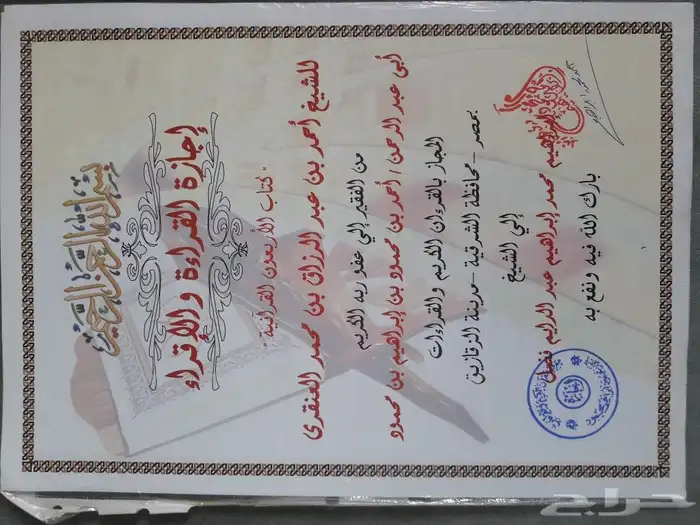 بسم الله الرحمن الرحيم
إجازة القراءة والإقراء
كتاب الأربعون القرآنية
للشيخ أحمد بن عبد الرزاق بن محمد العنقري
من الفقير إلي عفو ربه الكريم
أبي عبد الرحمن / أحمد بن محمود بن إبراهيم بن محمود
المجاز بالقرءان الكريم والقراءات
بمصر -محافظة الشرقية -مدينة الزقازيق
إلي الشيخ
محمد إبراهيم عبد الدايم
بارك الله فيه ونفع به
حراج